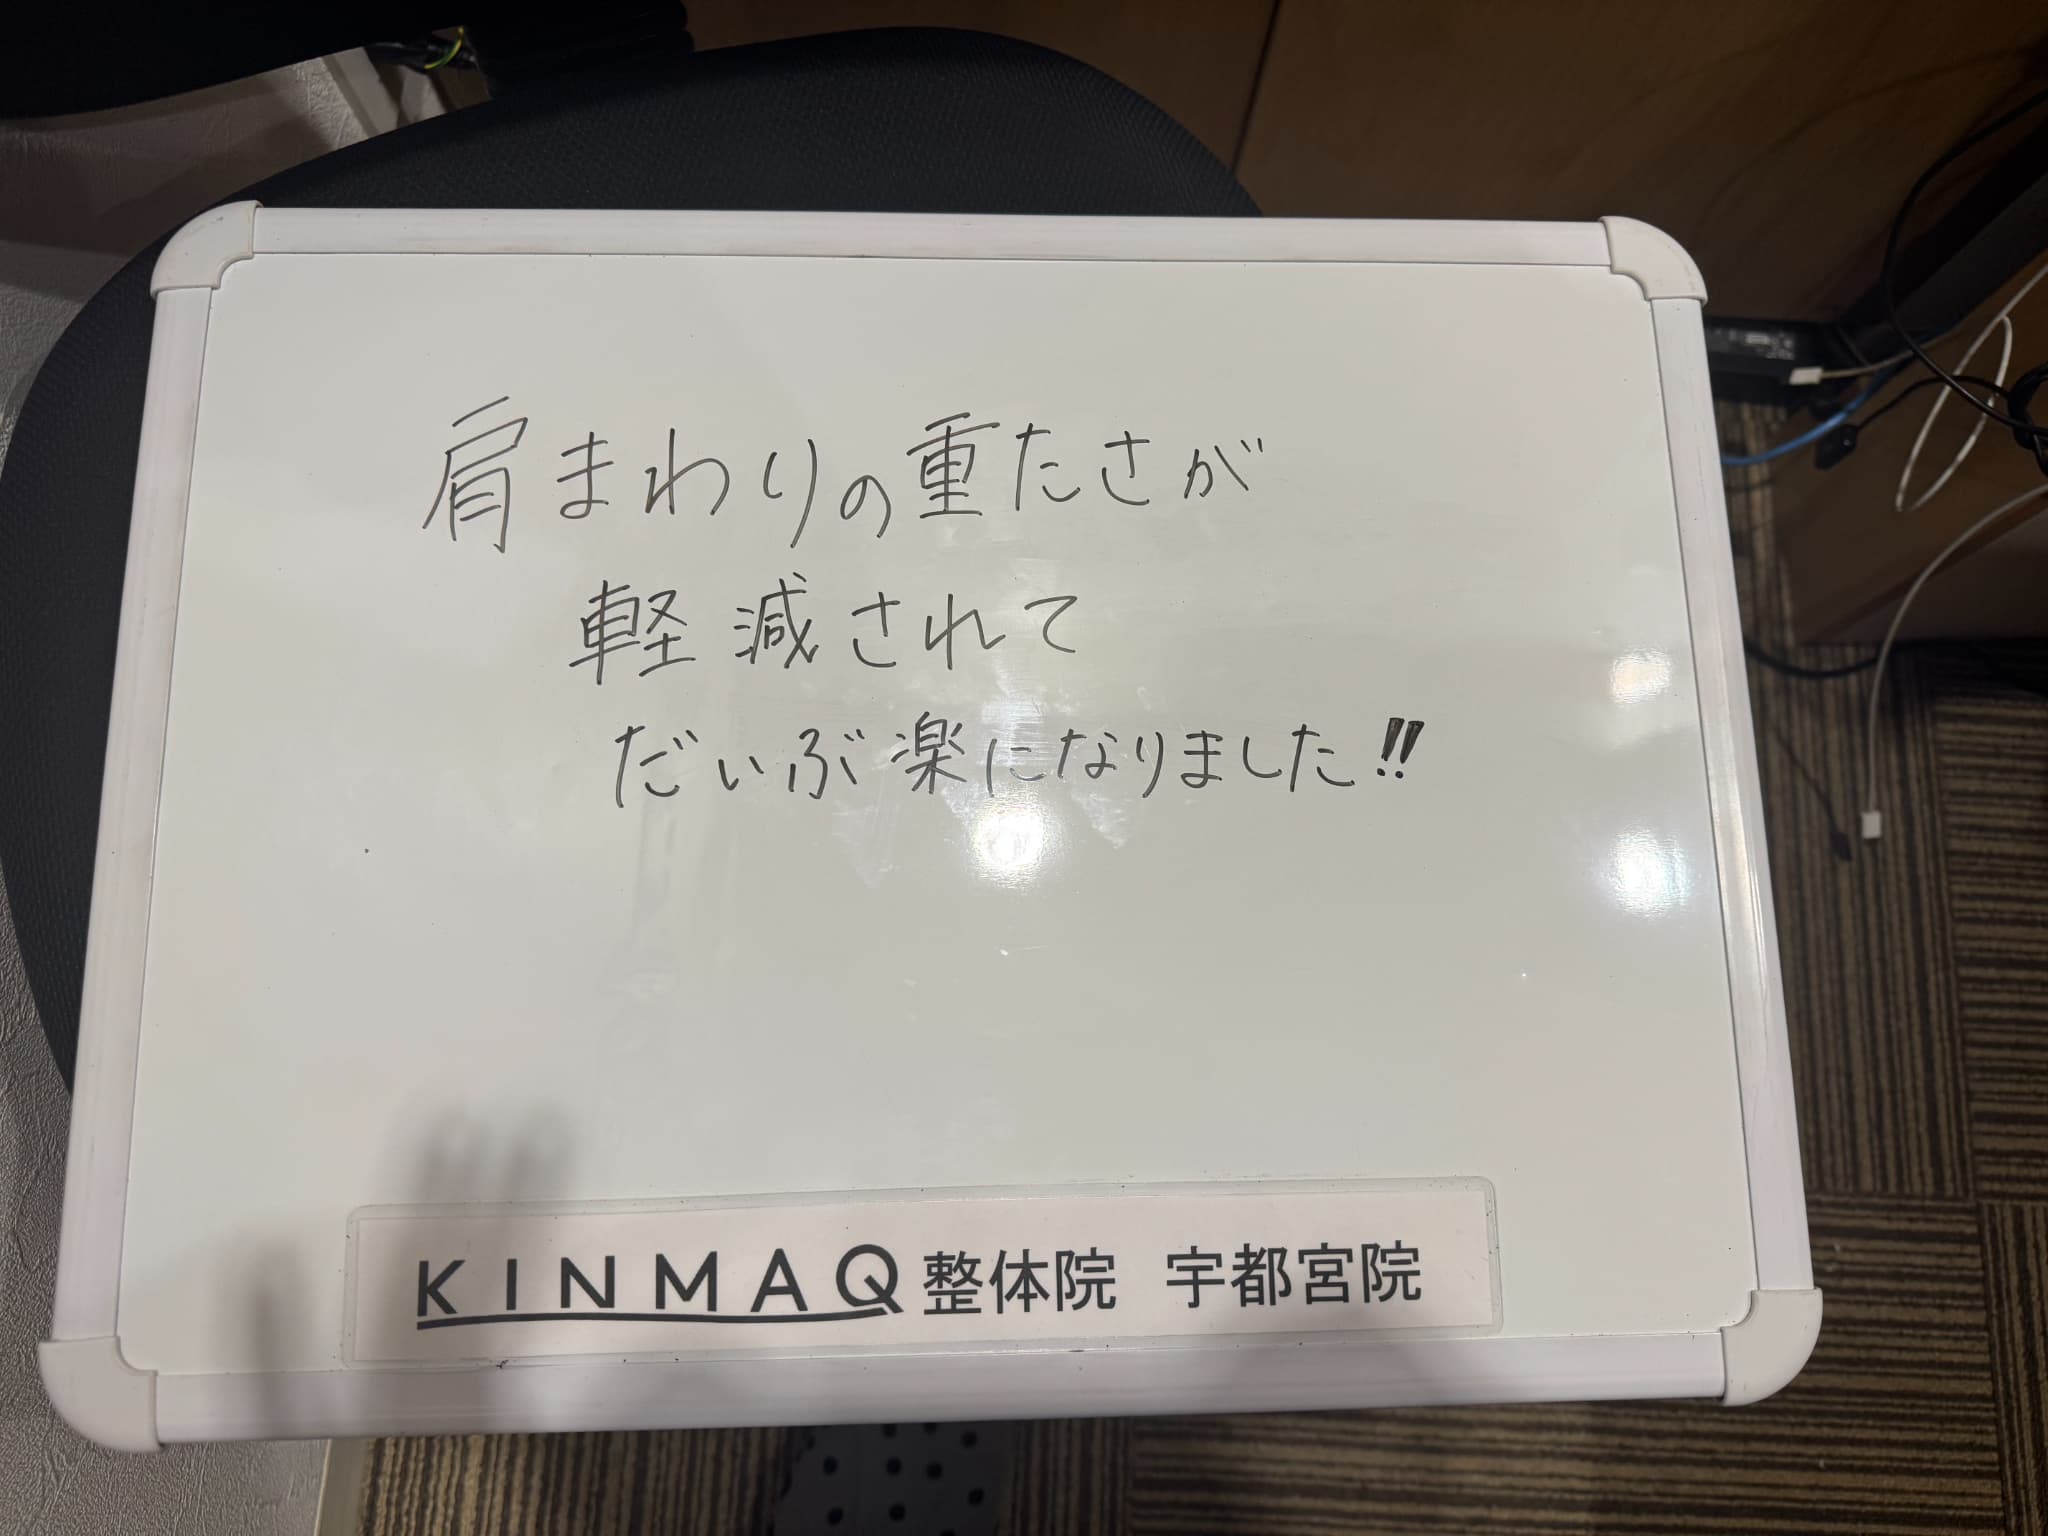 肩まわりの重たさが
軽減されて
だいぶ楽になりました!!
KINMAQ整体院 宇都宮院